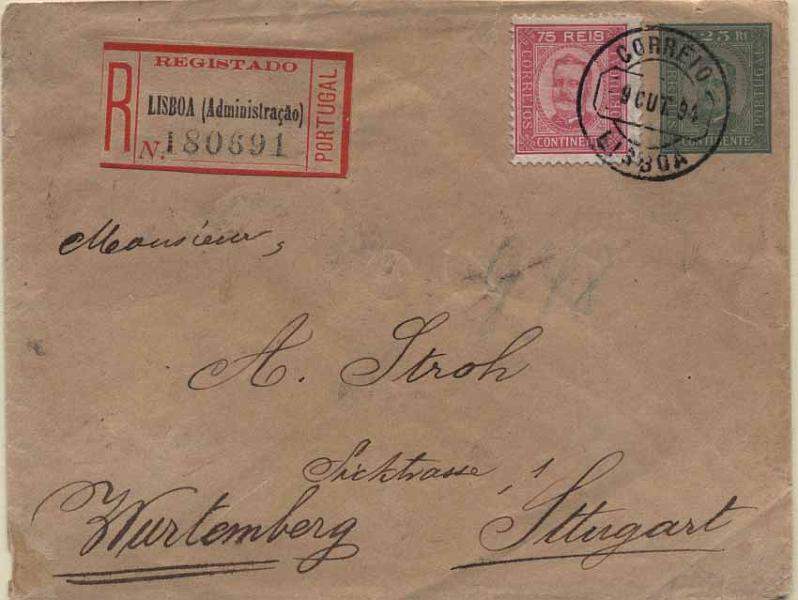 REGISTADO
R
LISBOA (Administração)
N. 180691
PORTUGAL
75 REIS
CORREIOS
CONTINENTE
25 R
PORTUGAL
CONTINENTE
CORREIO
9 OUT 94
LISBOA
Monsieur,
A. Stroh
1
Wurtemberg
Sttugart